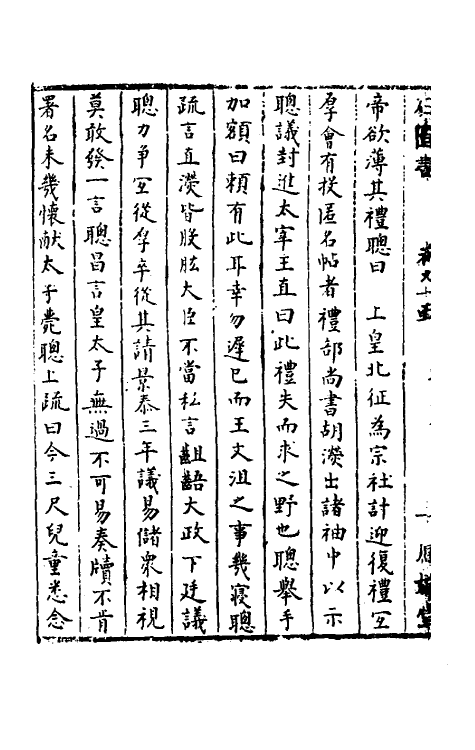 卷九十五
帝欲薄其禮聰曰　上皇北征為宗社計迎復禮宜
厚會有投匿名帖者禮部尚書胡濙出諸袖中以示
聰議封進太宰王直曰此禮失而求之野也聰舉手
加額曰賴有此耳幸勿遲已而王文沮之事幾寢聰
疏言直濙皆股肱大臣不當私言齟齬大政下廷議
聰力爭宜從厚卒從其請景泰三年議易儲衆相視
莫敢發一言聰昌言皇太子無過不可易奏牘不肯
署名未幾懷献太子薨聰上疏曰今三尺兒童悉念